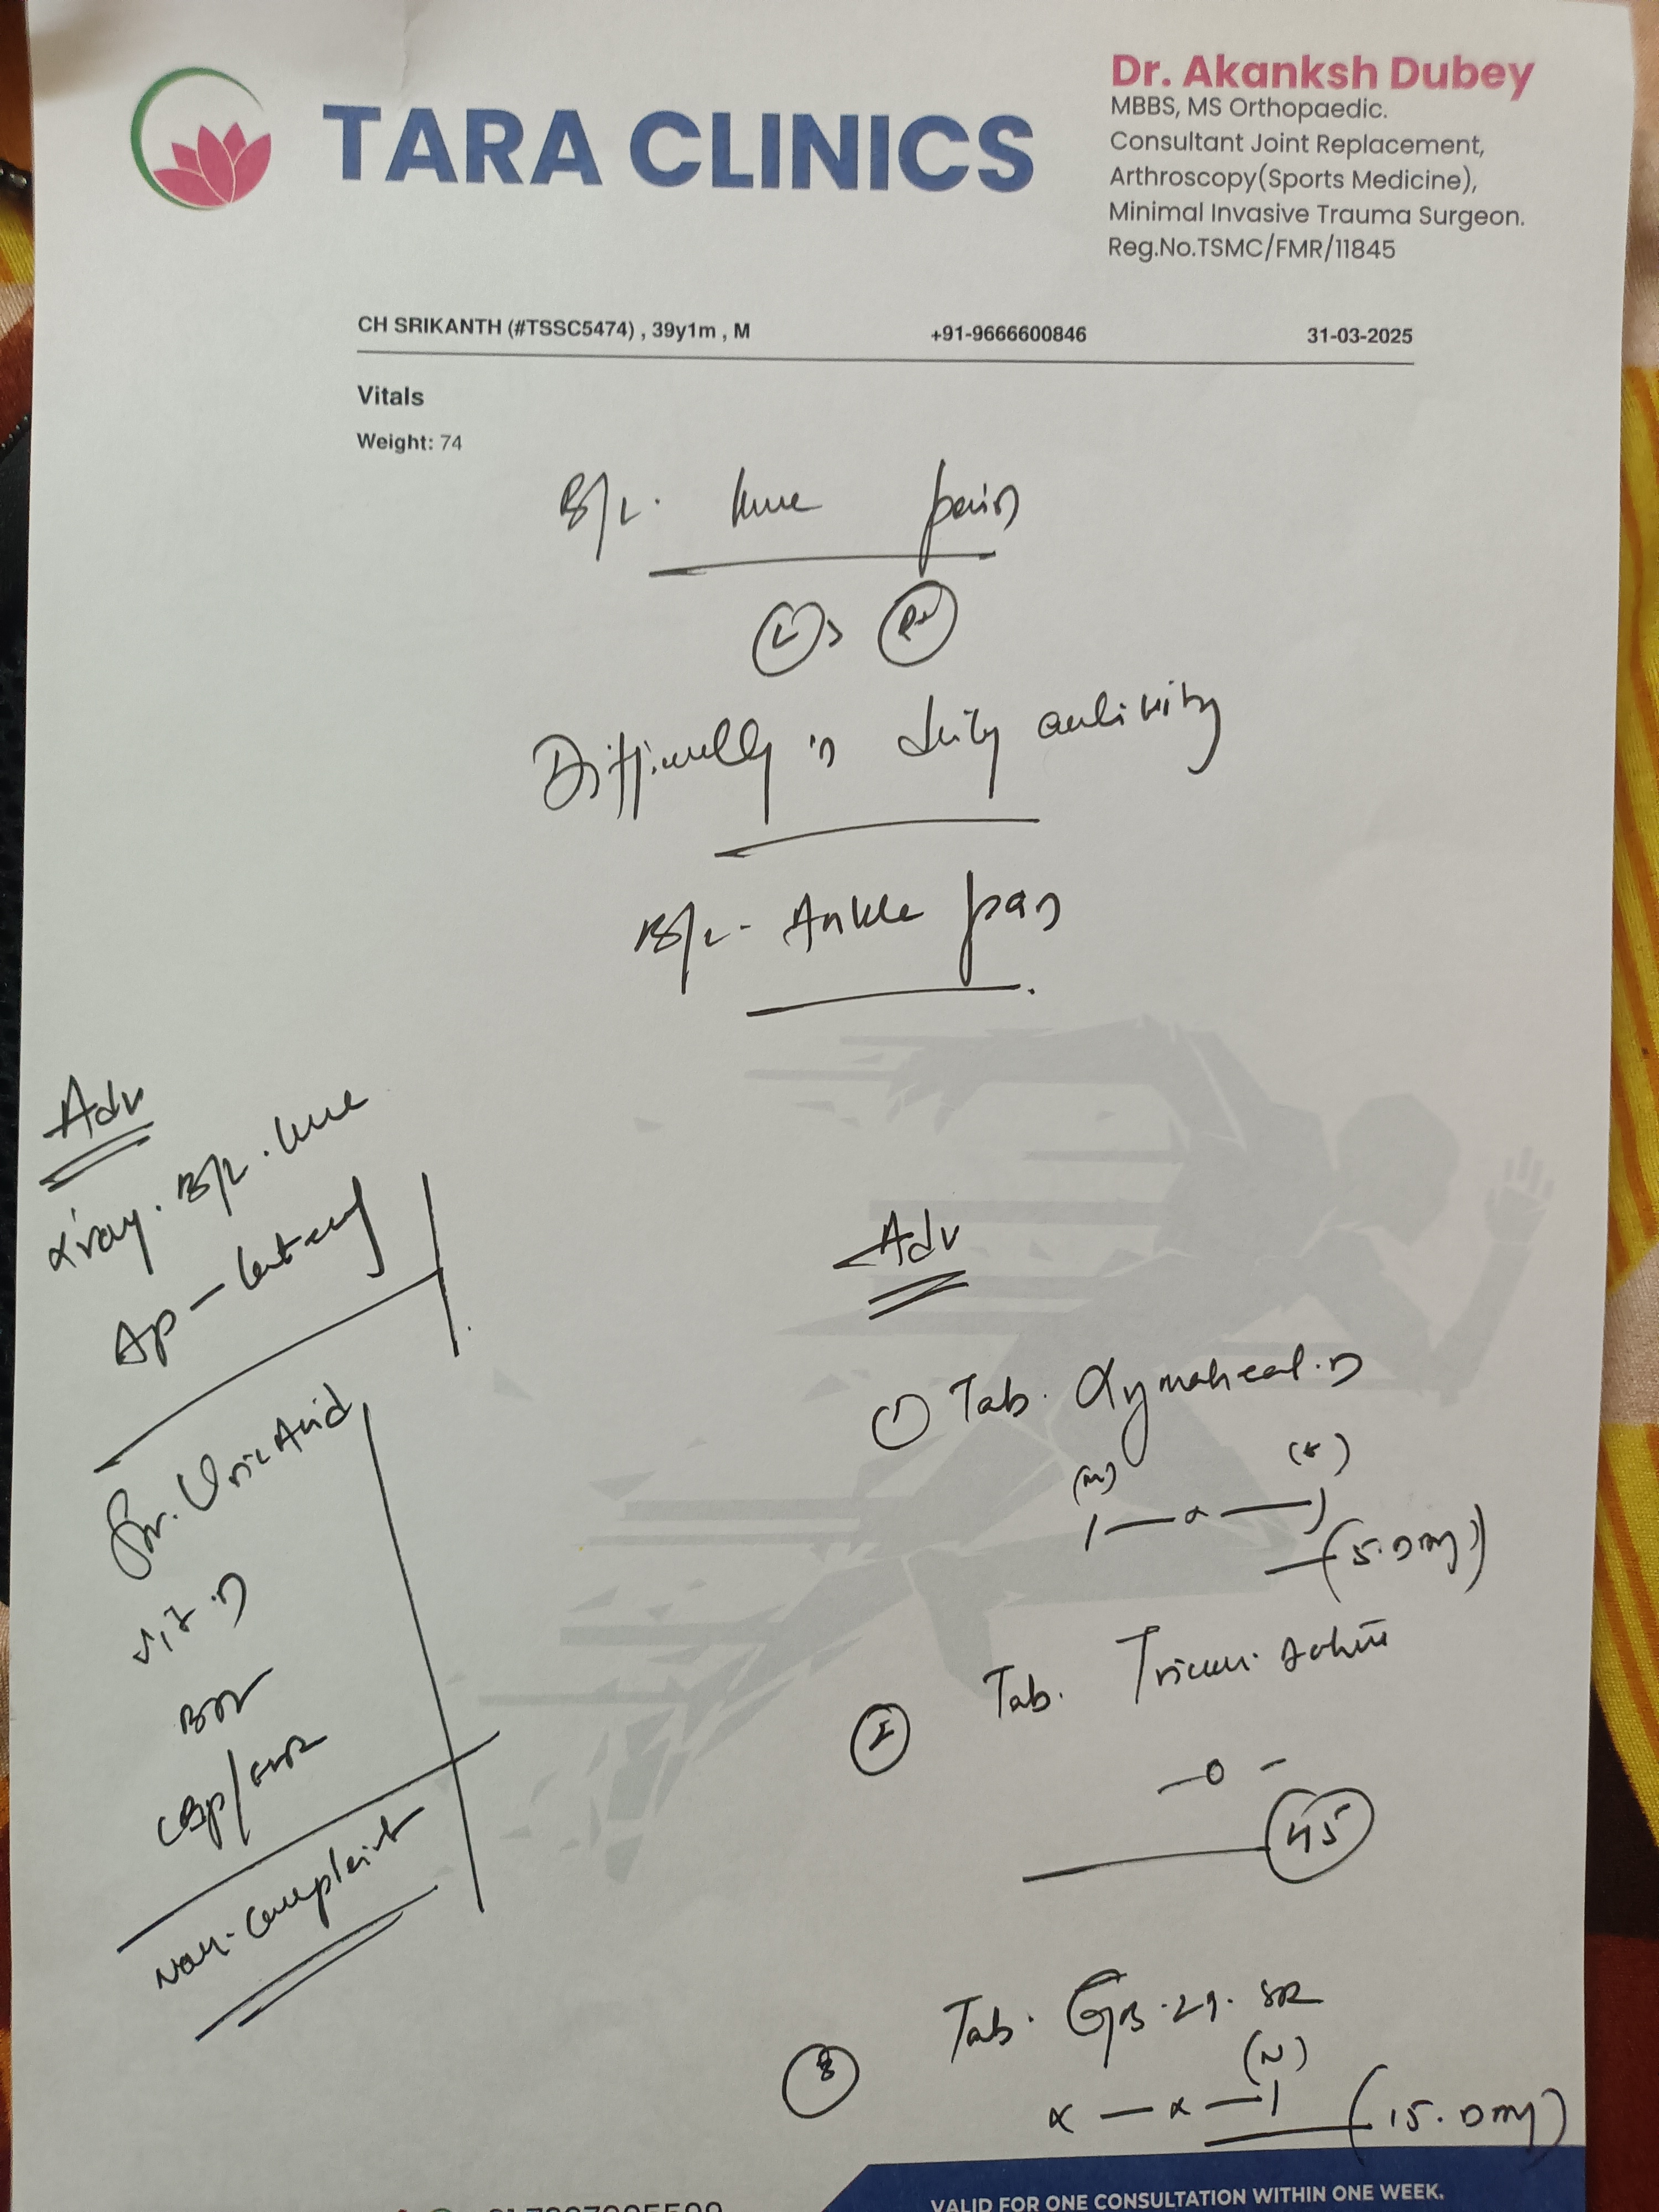 TARA CLINICS
Dr. Akanksh Dubey
MBBS, MS Orthopaedic.
Consultant Joint Replacement,
Arthroscopy(Sports Medicine),
Minimal Invasive Trauma Surgeon.
Reg.No.TSMC/FMR/11845
CH SRIKANTH (#TSSC5474) , 39y1m , M +91-9666600846 31-03-2025
Vitals
Weight: 74
B/L. knee pain
L >
Difficulty in daily activity
B/L - Ankle pain
Adv
Xray. B/L. knee
AP - Lateral
Sr. Uric Acid
Vit. D
CBP/
Non-Complaint
Adv
① Tab. Xymoheal.D
(M)
1 — x — 1
(5. Day)
② Tab.
— 0 —
45
③ Tab. GB.29. SR
(N)
x — x — 1 (15. Day)
VALID FOR ONE CONSULTATION WITHIN ONE WEEK.